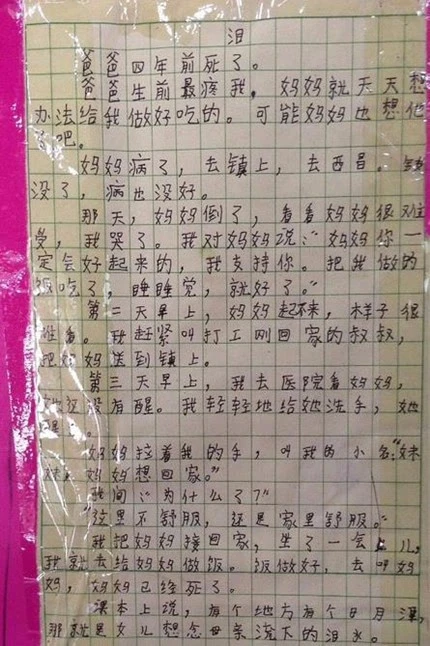 泪
爸爸四年前死了。
爸爸生前最疼我。妈妈就天天想
办法给我做好吃的。可能妈妈也想他
了吧。
妈妈病了，去镇上，去西昌。钱
没了，病也没好。
那天，妈妈倒了，看看妈妈很难
受，我哭了。我对妈妈说：“妈妈你一
定会好起来的，我支持你。把我做的
饭吃了，睡睡觉，就好了。”
第二天早上，妈妈起不来，样子很
难看。我赶紧叫打工刚回家的叔叔，
把妈妈送到镇上。
第三天早上，我去医院看妈妈，
她还没有醒。我轻轻地给她洗手，她
醒了。
妈妈拉着我的手，叫我的小名：“妹
妹，妈妈想回家。”
我问：“为什么了？”
“这里不舒服，还是家里舒服。”
我把妈妈接回家，坐了一会儿，
我就去给妈妈做饭。饭做好，去叫妈
妈，妈妈已经死了。
课本上说，有个地方有个日月潭，
那就是女儿想念母亲流下的泪水。